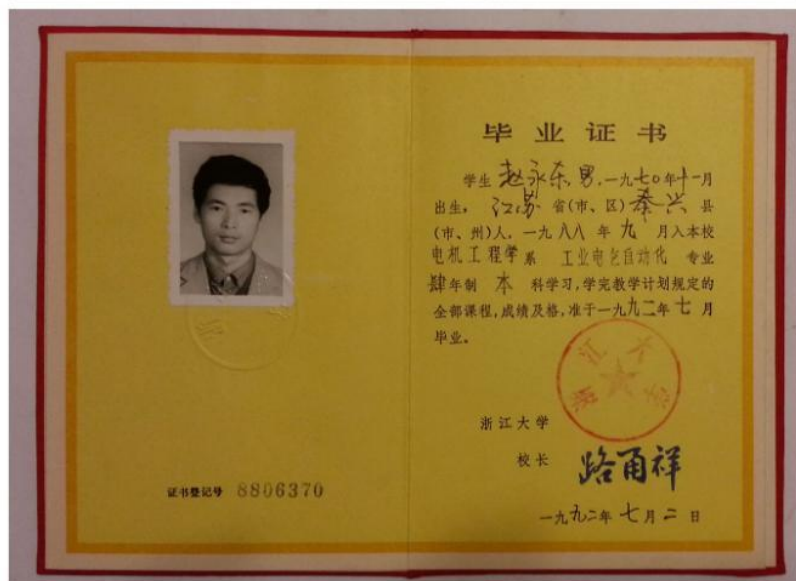 毕业证书
学生 赵永东 男，一九七〇年十一月
出生，江苏省(市、区)泰兴县
(市、州)人，一九八八年九月入本校
电机工程学系 工业电气自动化 专业
肆年制 本 科学习，学完教学计划规定的
全部课程，成绩及格，准于一九九二年七月
毕业。
浙江大学
浙江大学
校长 路甬祥
一九九二年七月二日
证书登记号 8806370